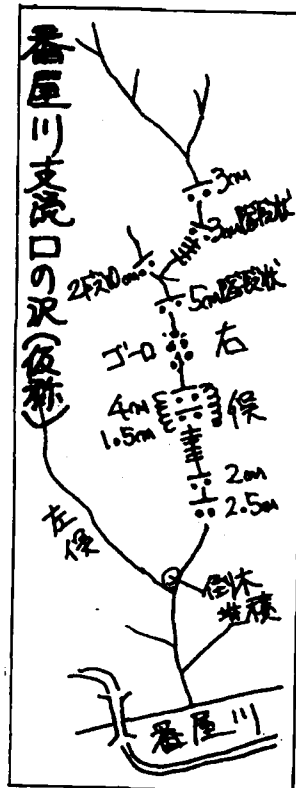 番屋川支流口の沢(仮称)
3m
3m階段状
2段10m
5m階段状
ゴーロ
右俣
4m
1.5m
2m
2.5m
左俣
倒木堆積
番屋川